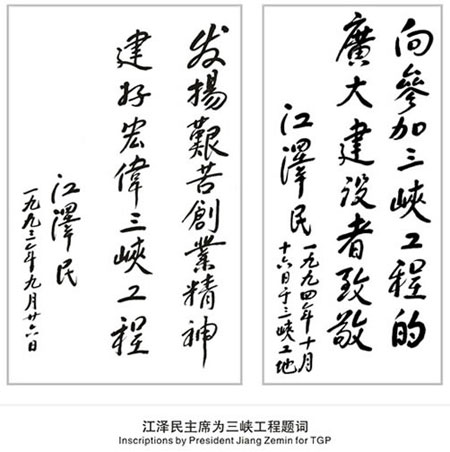 发揚艱苦創業精神
建好宏偉三峽工程
江澤民
一九九三年九月廿六日
向參加三峽工程的
廣大建设者致敬
江澤民
一九九四年十月
十六日于三峽工地
江泽民主席为三峡工程题词
Inscriptions by President Jiang Zemin for TGP